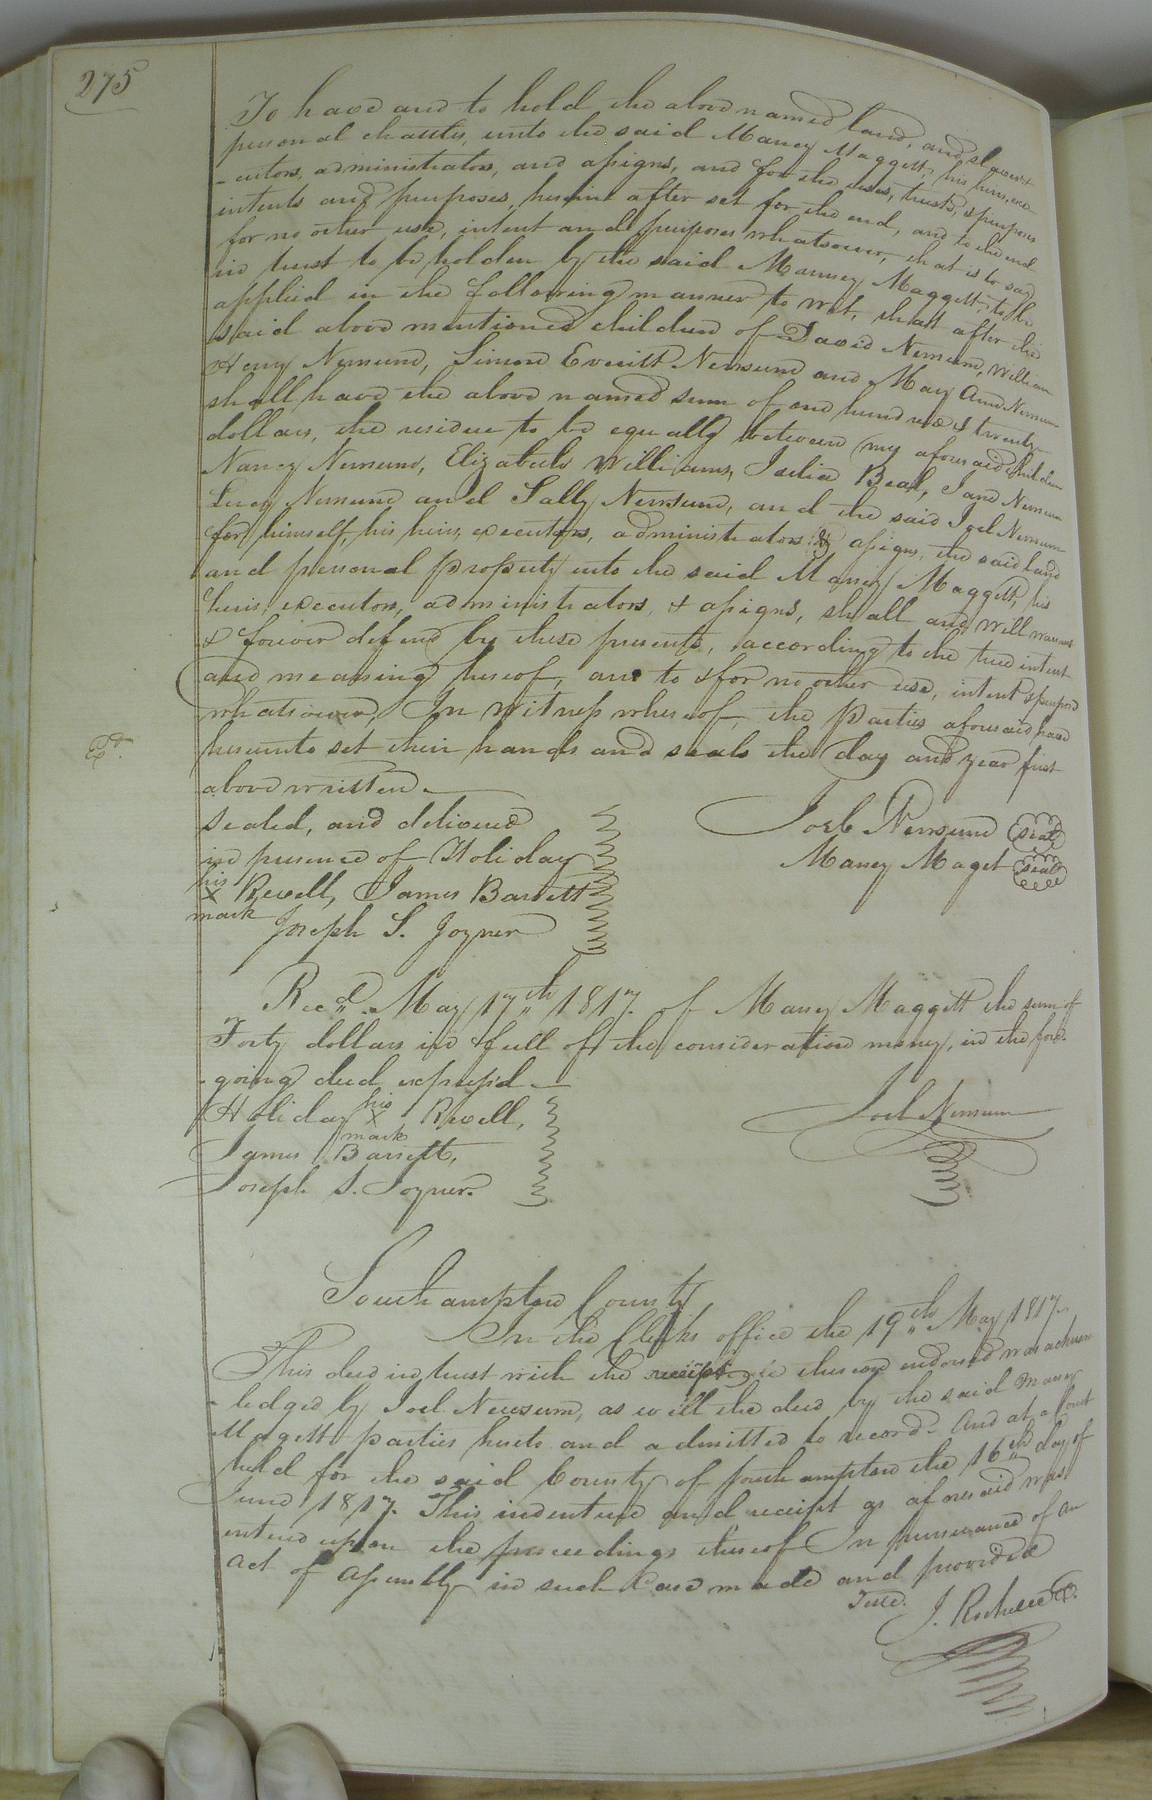 275
To have and to hold the above named land, and slaves &
personal chattles, unto the said Maney Maggett, his heirs, exe-
-cutors, administrators, and assigns, and for the uses, trusts, & purposes
intents and purposes, herein after set for the end, and to the end
for no other use, intent and purposes whatsoever, that is to say
in trust to be holden by the said Manney Maggett, to be
applied in the following manner to wit, that after the
said above mentioned children of David Newsum, William
Henry Newsum, Simon Everitt Newsum and May Ann Newsum
shall have the above named sum of one hundred & twenty
dollars, the residue to be equally between my aforesaid children
Nancy Newsum, Elizabeth Williams, Beal, Jane Newsum
Lucy Newsum and Sally Newsum, and the said Joel Newsum
for himself, his heirs, executors, administrators & assigns, the said land
and personal property unto the said Maney Maggett, his
heirs, executors, administrators, & assigns, shall and will warrant
& forever defend by these presents, according to the true intent
and meaning hereof, and to & for no other use, intent & purpose
whatsoever, In witness whereof, the Parties aforesaid have
hereunto set their hands and seals the day and year first
Exd.
above written.
Sealed, and delivered
in presence of Holiday
his
X Revell, James Barrett
mark
Joseph S. Joyner
Joel Newsum seal
Maney Maget seal
Recd. May 17th 1817. of Maney Maggett the sum of
Forty dollars in full of the consideration money, in the fore-
-going deed expressd
Holiday his X Revell,
mark
James Barrett,
Joseph S. Joyner.
Joel Newsum
Southampton County
In the Clerks office the 19th May 1817.
This deed in trust with the receipt thereon endorsed was acknow
-ledged by Joel Newsum, as will the deed by the said Maney
Magett parties hereto and admitted to record. And at a Court
held for the said County of Southampton the 16th day of
June 1817. This indenture and receipt as aforesaid was
entered upon the proceedings thereof In pursuance of an
Act of Assembly in such Case made and provided
Teste.
J. Rochelle